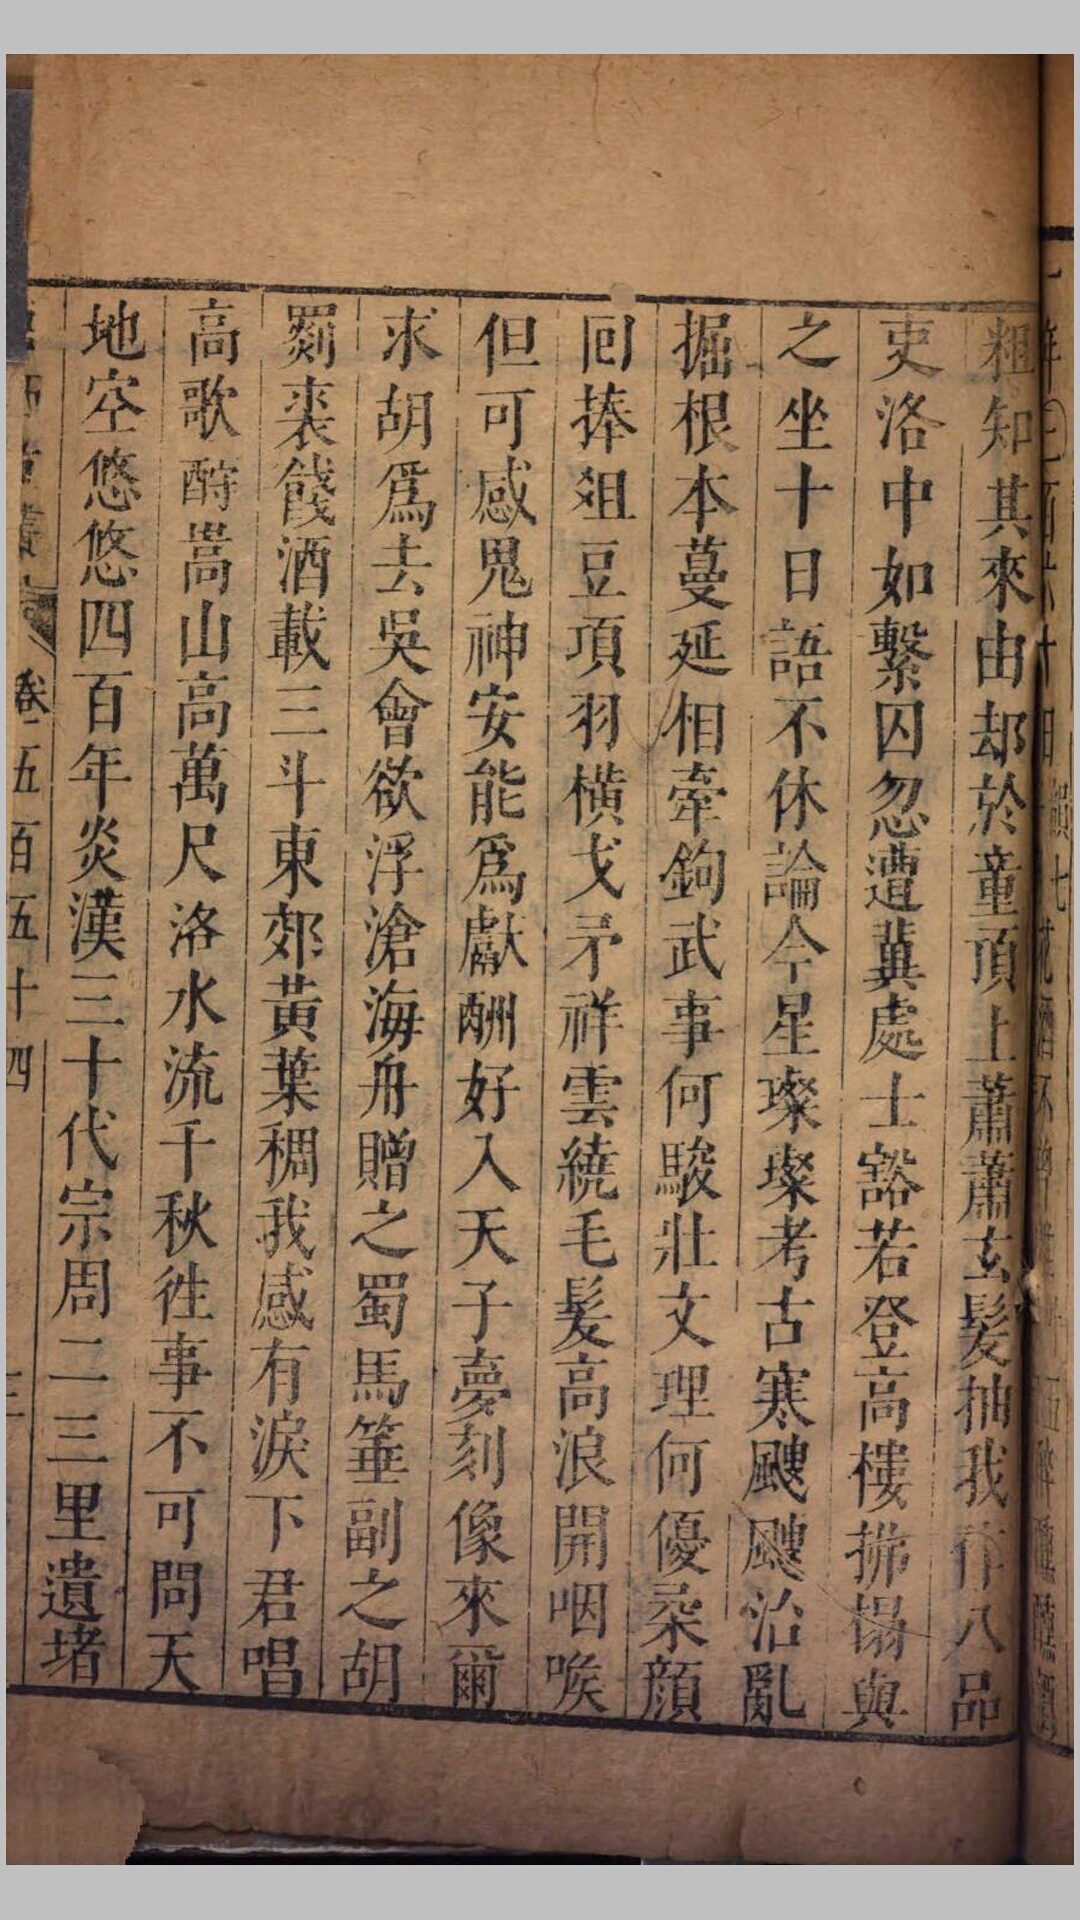 粗知其來由却於童頂上蕭蕭玄髮抽我作八品
吏洛中如繫囚忽遭冀處士豁若登高樓拂榻與
之坐十日語不休論今星璨璨考古寒颼颼治亂
掘根本蔓延相牽鉤武事何駿壯文理何優柔顏
回捧俎豆項羽橫戈矛祥雲繞毛髮高浪開咽喉
但可感鬼神安能爲獻酬好入天子夢刻像來爾
求胡爲去吳會欲浮滄海舟贈之蜀馬箠副之胡
罽裘餞酒載三斗東郊黃葉稠我感有淚下君唱
高歌酧嵩山高萬尺洛水流千秋徃事不可問天
地空悠悠四百年炎漢三十代宗周二三里遺堵
卷五百五十四